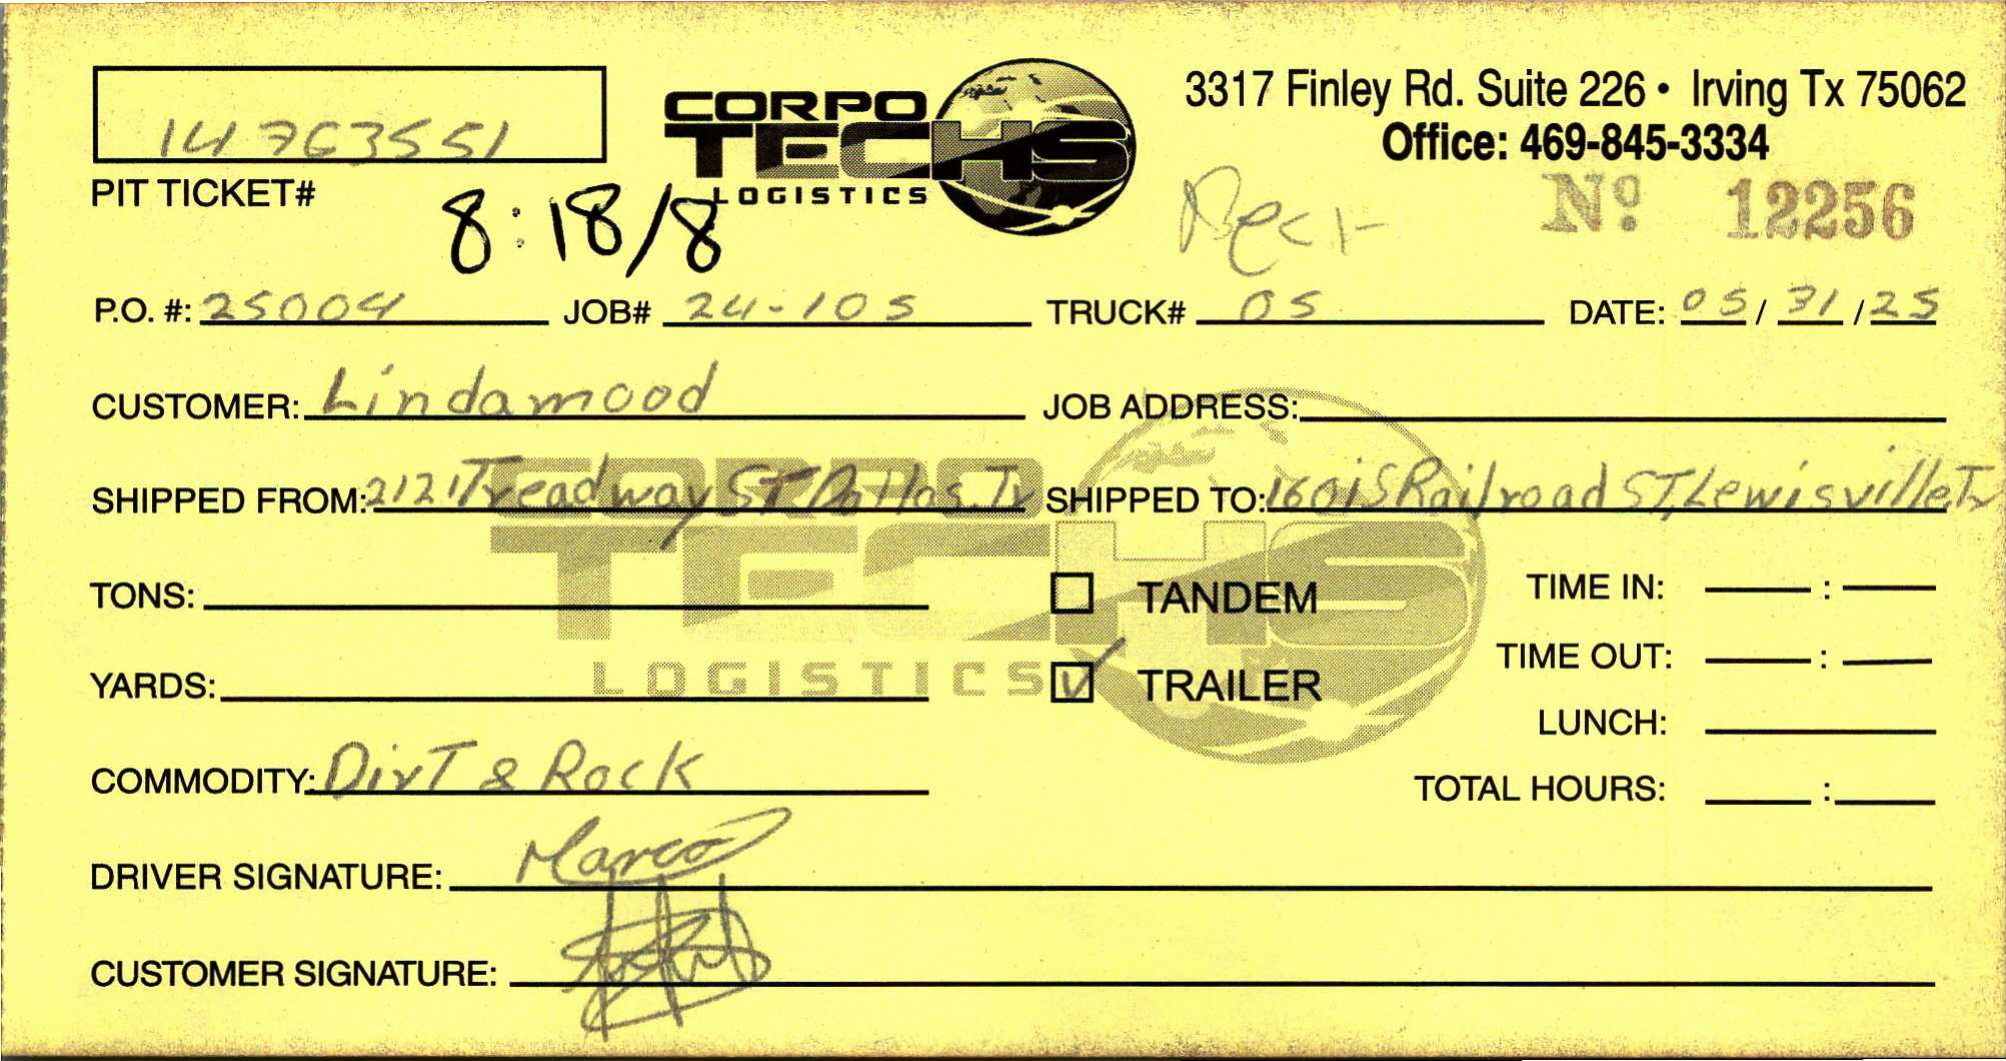 14763551
PIT TICKET#
CORPO
TECHS
LOGISTICS
3317 Finley Rd. Suite 226 • Irving Tx 75062
Office: 469-845-3334
8:18/8
Nº 12256
P.O. #: 25004 JOB# 24-105 TRUCK# 05 DATE: 05/31/25
CUSTOMER: Lindamood JOB ADDRESS:
SHIPPED FROM: 2121 Treadway ST Dallas, Tx SHIPPED TO: 1601 S Railroad ST, Lewisville Tx
CORPO
TECHS
LOGISTICS
TONS: TANDEM TIME IN: :
TIME OUT: :
YARDS: TRAILER
LUNCH:
COMMODITY: Dirt & Rock TOTAL HOURS: :
DRIVER SIGNATURE: Marco
CUSTOMER SIGNATURE: